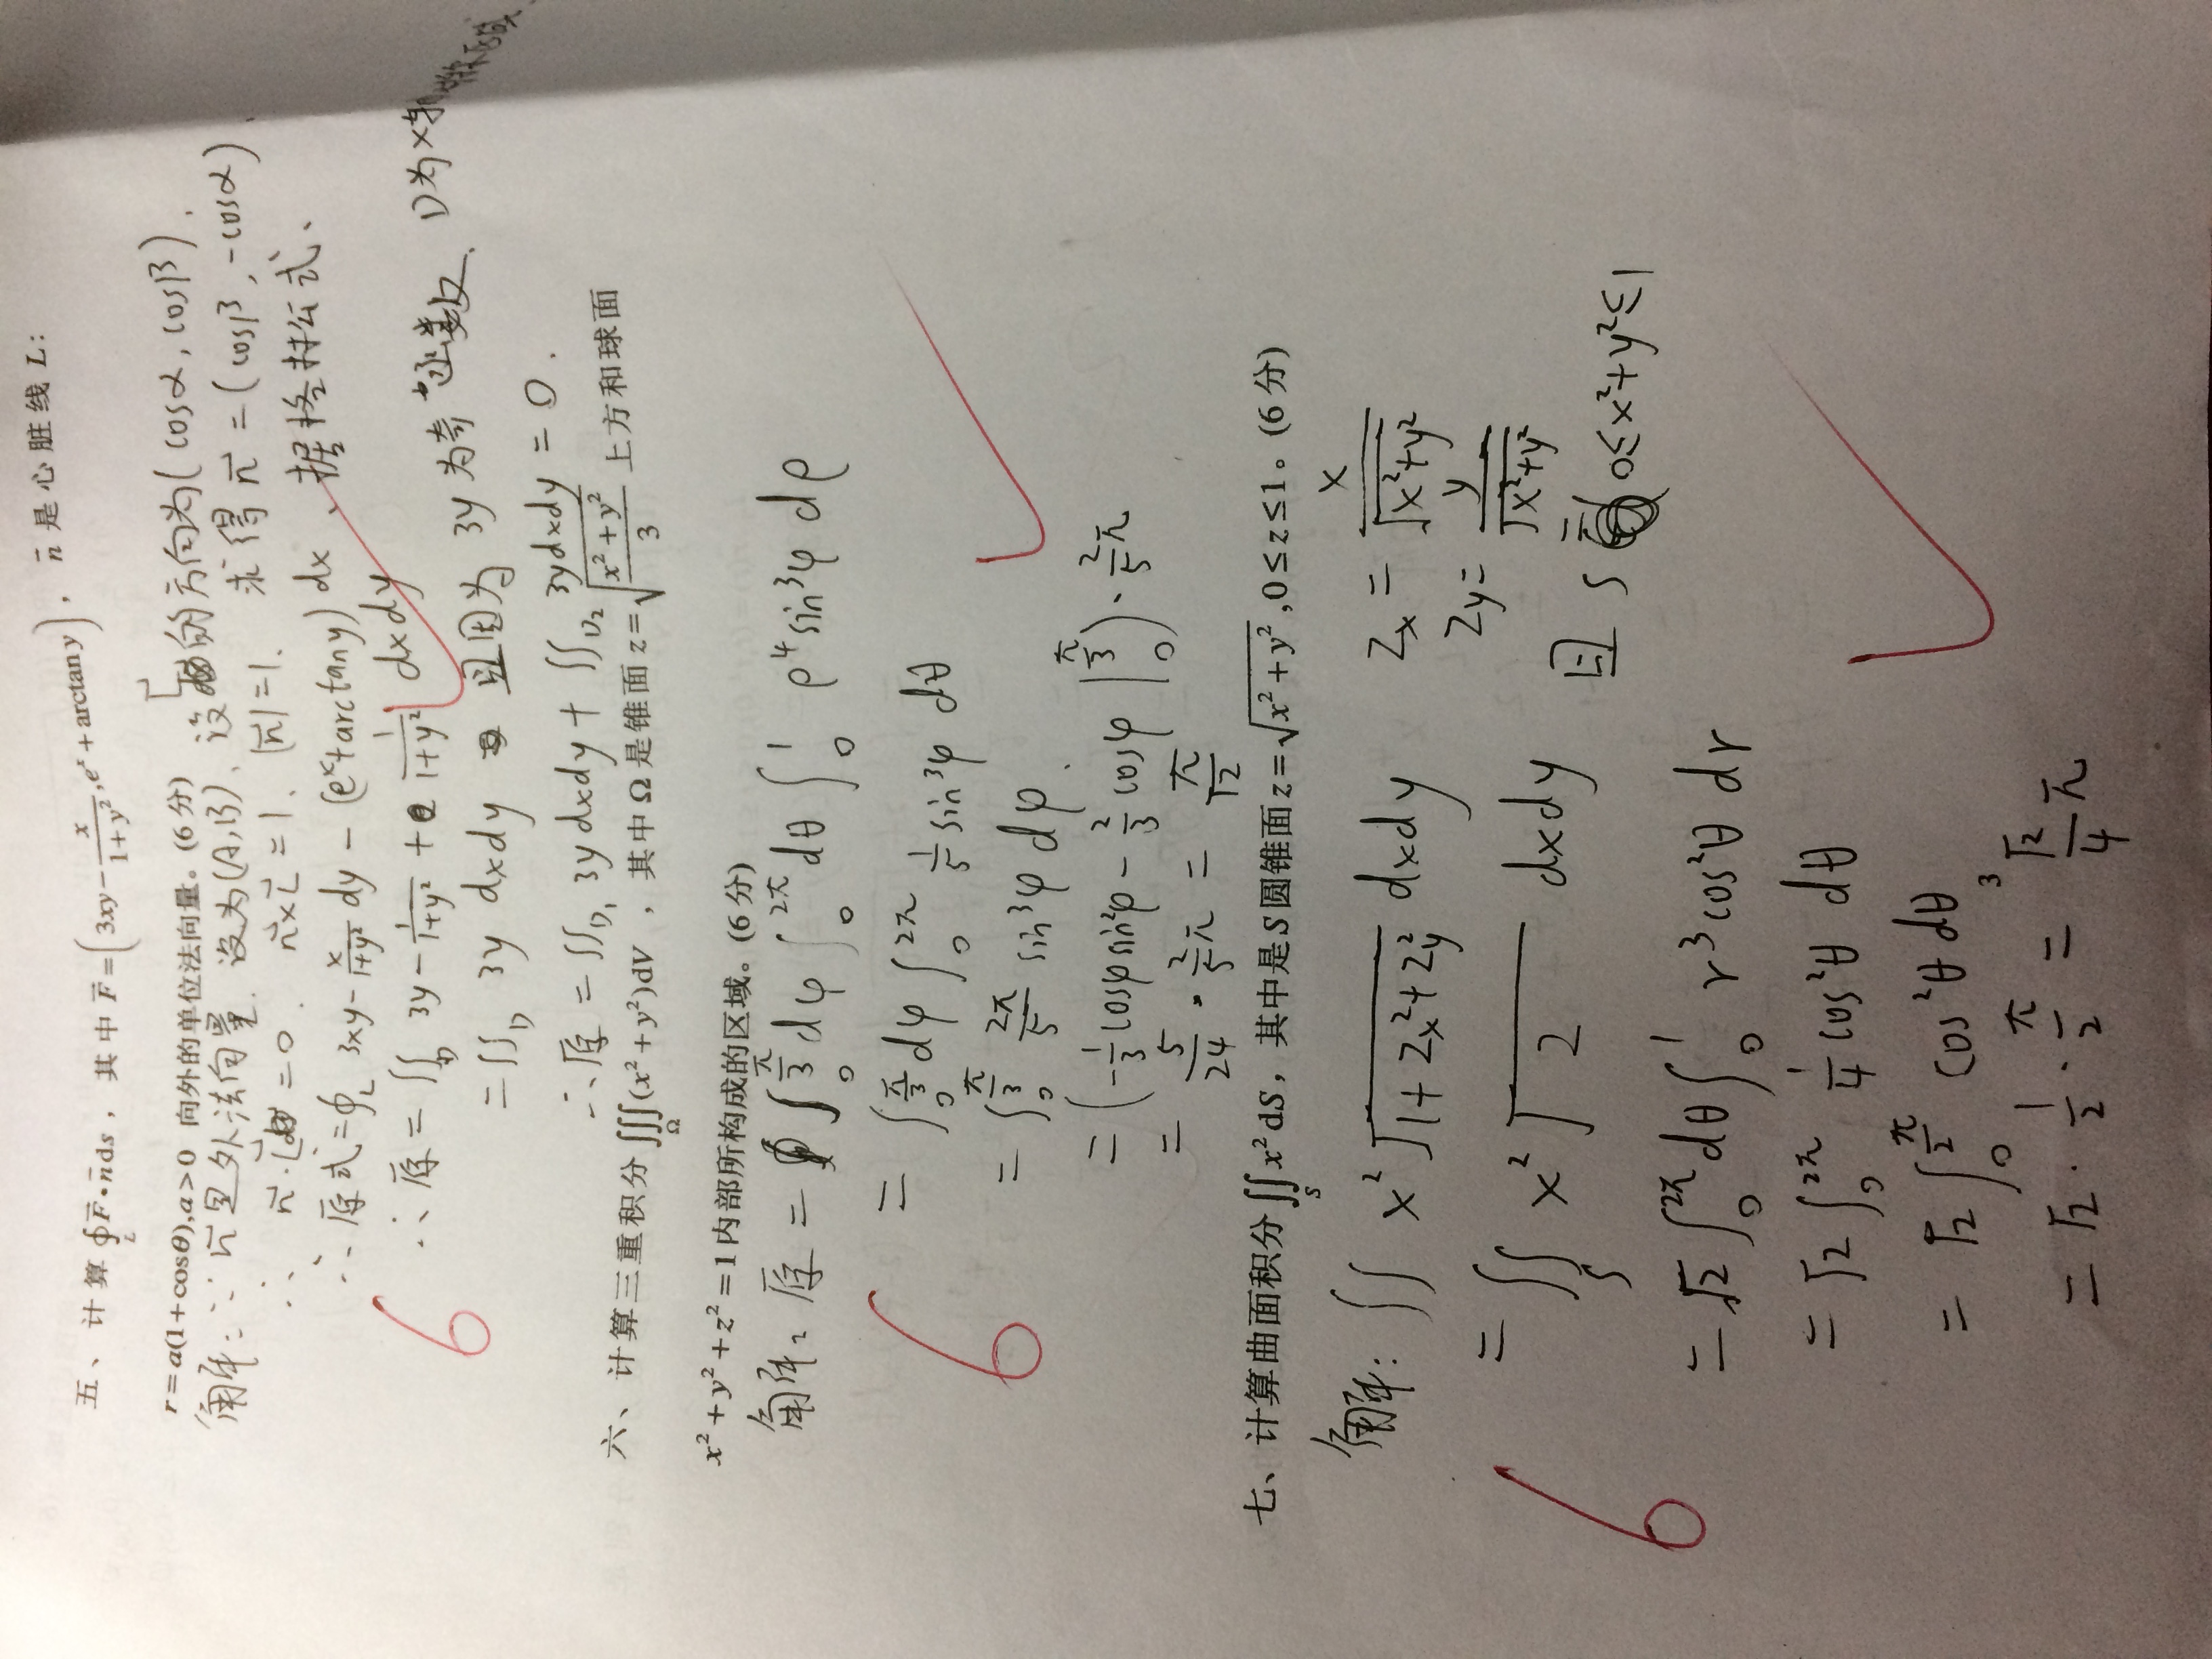 五、计算∮_L F⃗·n⃗ds，其中F⃗=(3xy−x/(1+y²), eˣ+arctan y)，n⃗是心脏线L:
r=a(1+cosθ),a>0 向外的单位法向量。(6分)
解:∵n⃗是外法向量.设为(A,B)、设L⃗的方向为(cosα,cosβ).
∴ n⃗·L⃗=0. n⃗×L⃗=1、|n⃗|=1. 求得n⃗=(cosβ,-cosα).
∴原式=∮_L 3xy−x/(1+y²) dy−(eˣ+arctany)dx、据格林公式、
∴原=∬_D 3y−1/(1+y²)+1/(1+y²) dxdy
6
=∬_D 3y dxdy 且因为3y为奇函数、D为x轴
∴原=∬_D₁ 3ydxdy+∬_D₂ 3ydxdy=0.
六、计算三重积分∭_Ω(x²+y²)dV，其中Ω是锥面z=√((x²+y²)/3)上方和球面
x²+y²+z²=1内部所构成的区域。(6分)
解:原=∫₀^(π/3)dφ∫₀^(2π)dθ∫₀^1 ρ⁴sin³φ dρ
=∫₀^(π/3)dφ∫₀^(2π) 1/5 sin³φ dθ
6
=∫₀^(π/3) 2π/5 sin³φ dφ.
=(−1/3 cosφsin²φ−2/3 cosφ |₀^(π/3))·2/5 π
=5/24·2/5 π=π/12
七、计算曲面积分∬_S x²dS，其中是S圆锥面z=√(x²+y²),0≤z≤1。(6分)
解:∬ x²√(1+Zx²+Zy²) dxdy Zx=x/√(x²+y²)
Zy=y/√(x²+y²)
=∬_S x²√2 dxdy
且S 0≤x²+y²≤1
6
=√2∫₀^(2π)dθ∫₀^1 r³cos²θ dr
=√2∫₀^(2π) 1/4 cos²θ dθ
=√2∫₀^(π/2) cos²θdθ
=√2·1/2·π/2=√2/4 π
3